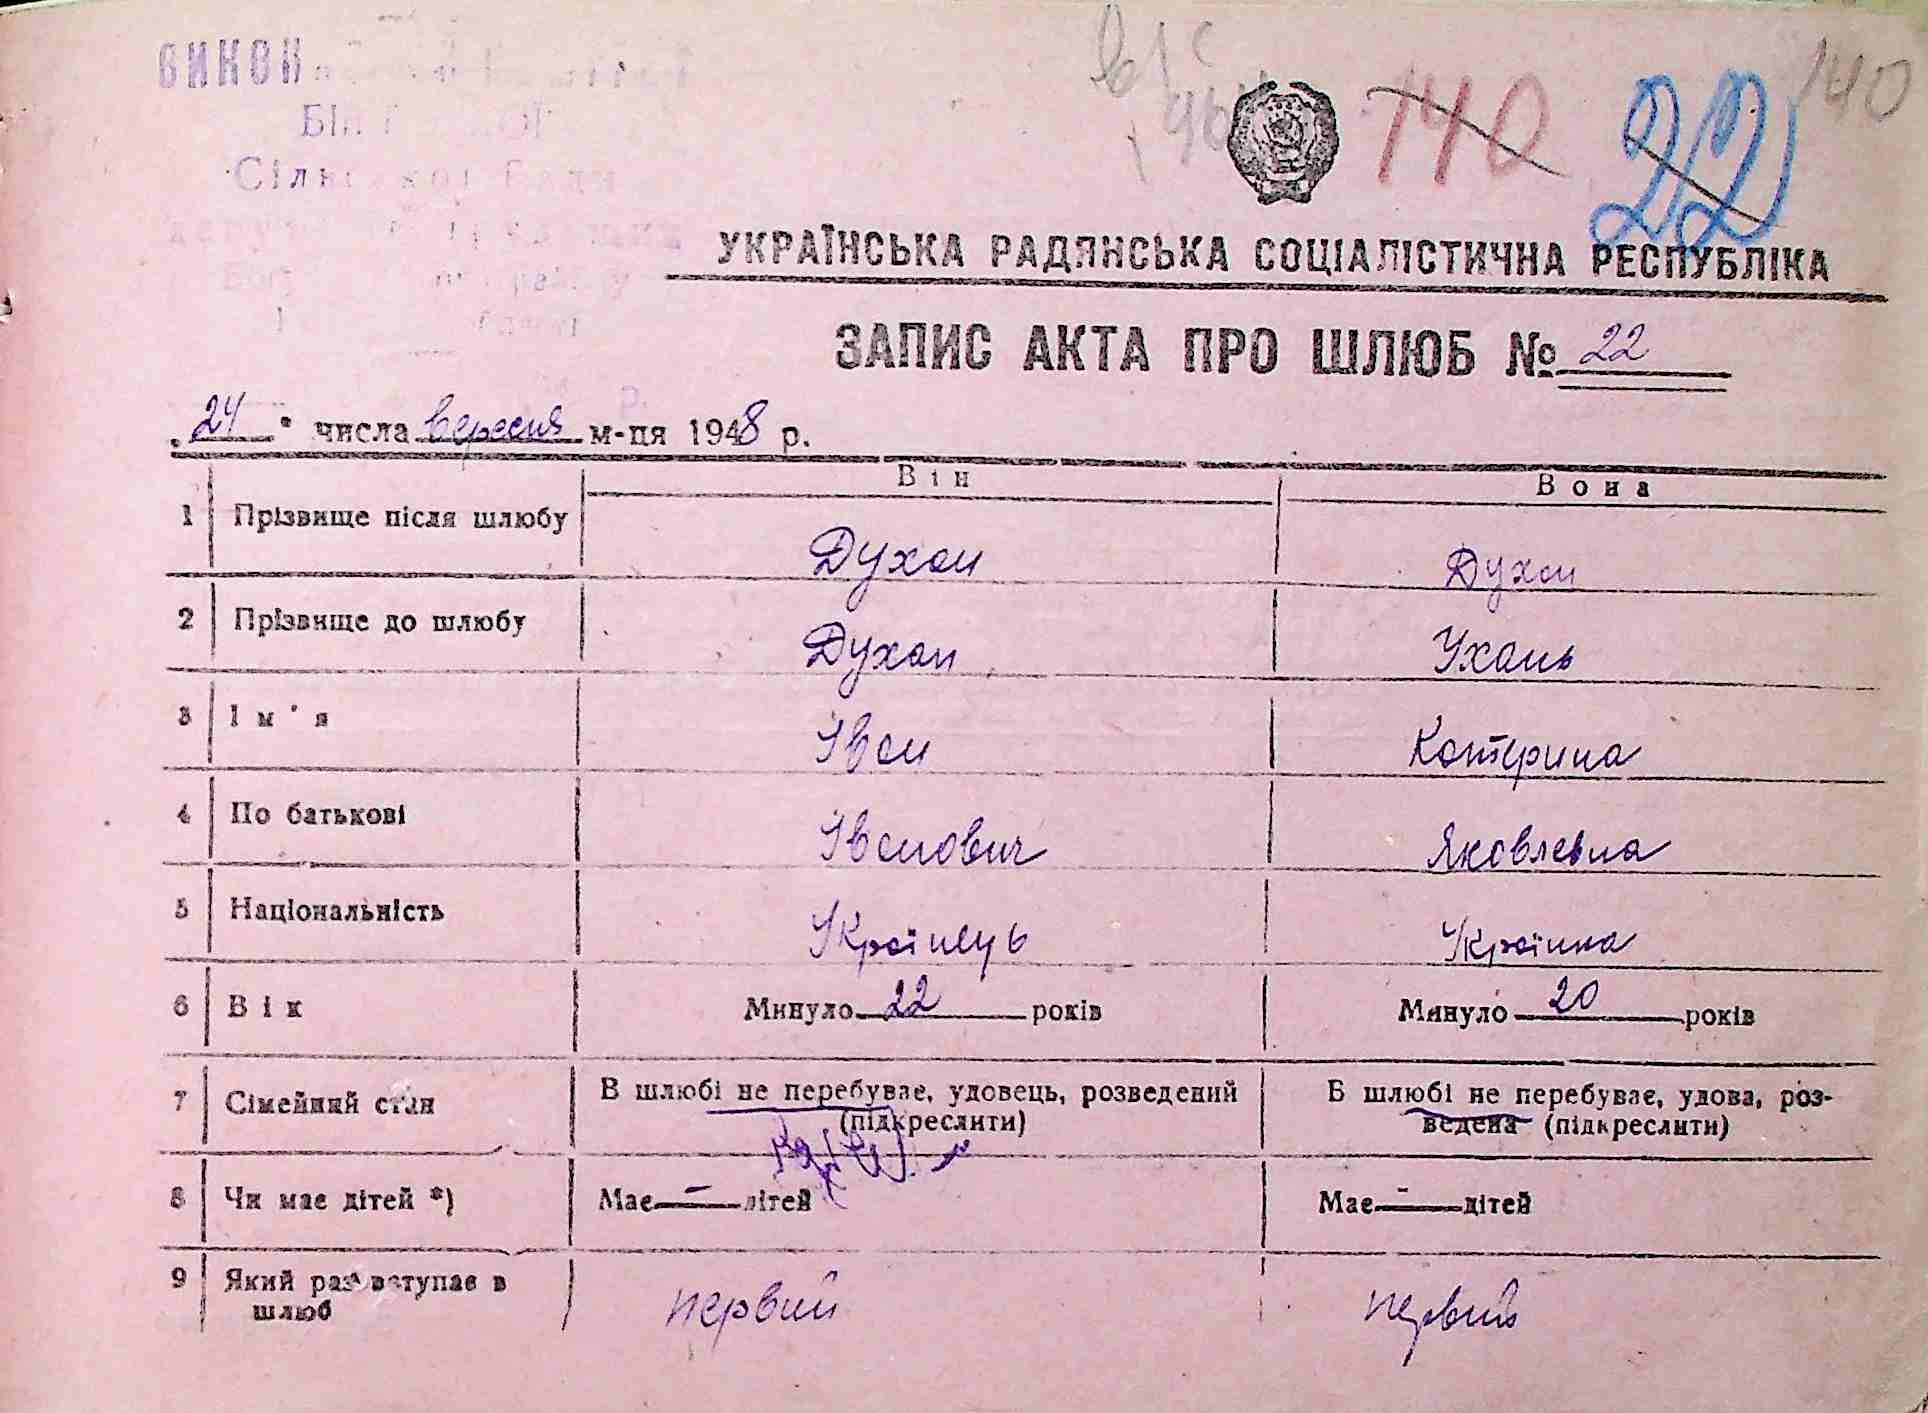 ВИКОН
Сільської Ради
140
140
22
УКРАЇНСЬКА РАДЯНСЬКА СОЦІАЛІСТИЧНА РЕСПУБЛІКА
ЗАПИС АКТА ПРО ШЛЮБ № 22
„24“ числа вересня м-ця 1948 р.
Він Вона
1 Прізвище після шлюбу Духан Духан
2 Прізвище до шлюбу Духан Ухань
3 Ім'я Іван Катерина
4 По батькові Іванович Яковлевна
5 Національність Українець Українка
6 Вік Минуло 22 років Минуло 20 років
7 Сімейний стан В шлюбі не перебуває, удовець, розведений В шлюбі не перебуває, удова, роз-
(підкреслити) ведена (підкреслити)
8 Чи має дітей *) Має — дітей Має — дітей
9 Який раз вступає в первий первий
шлюб